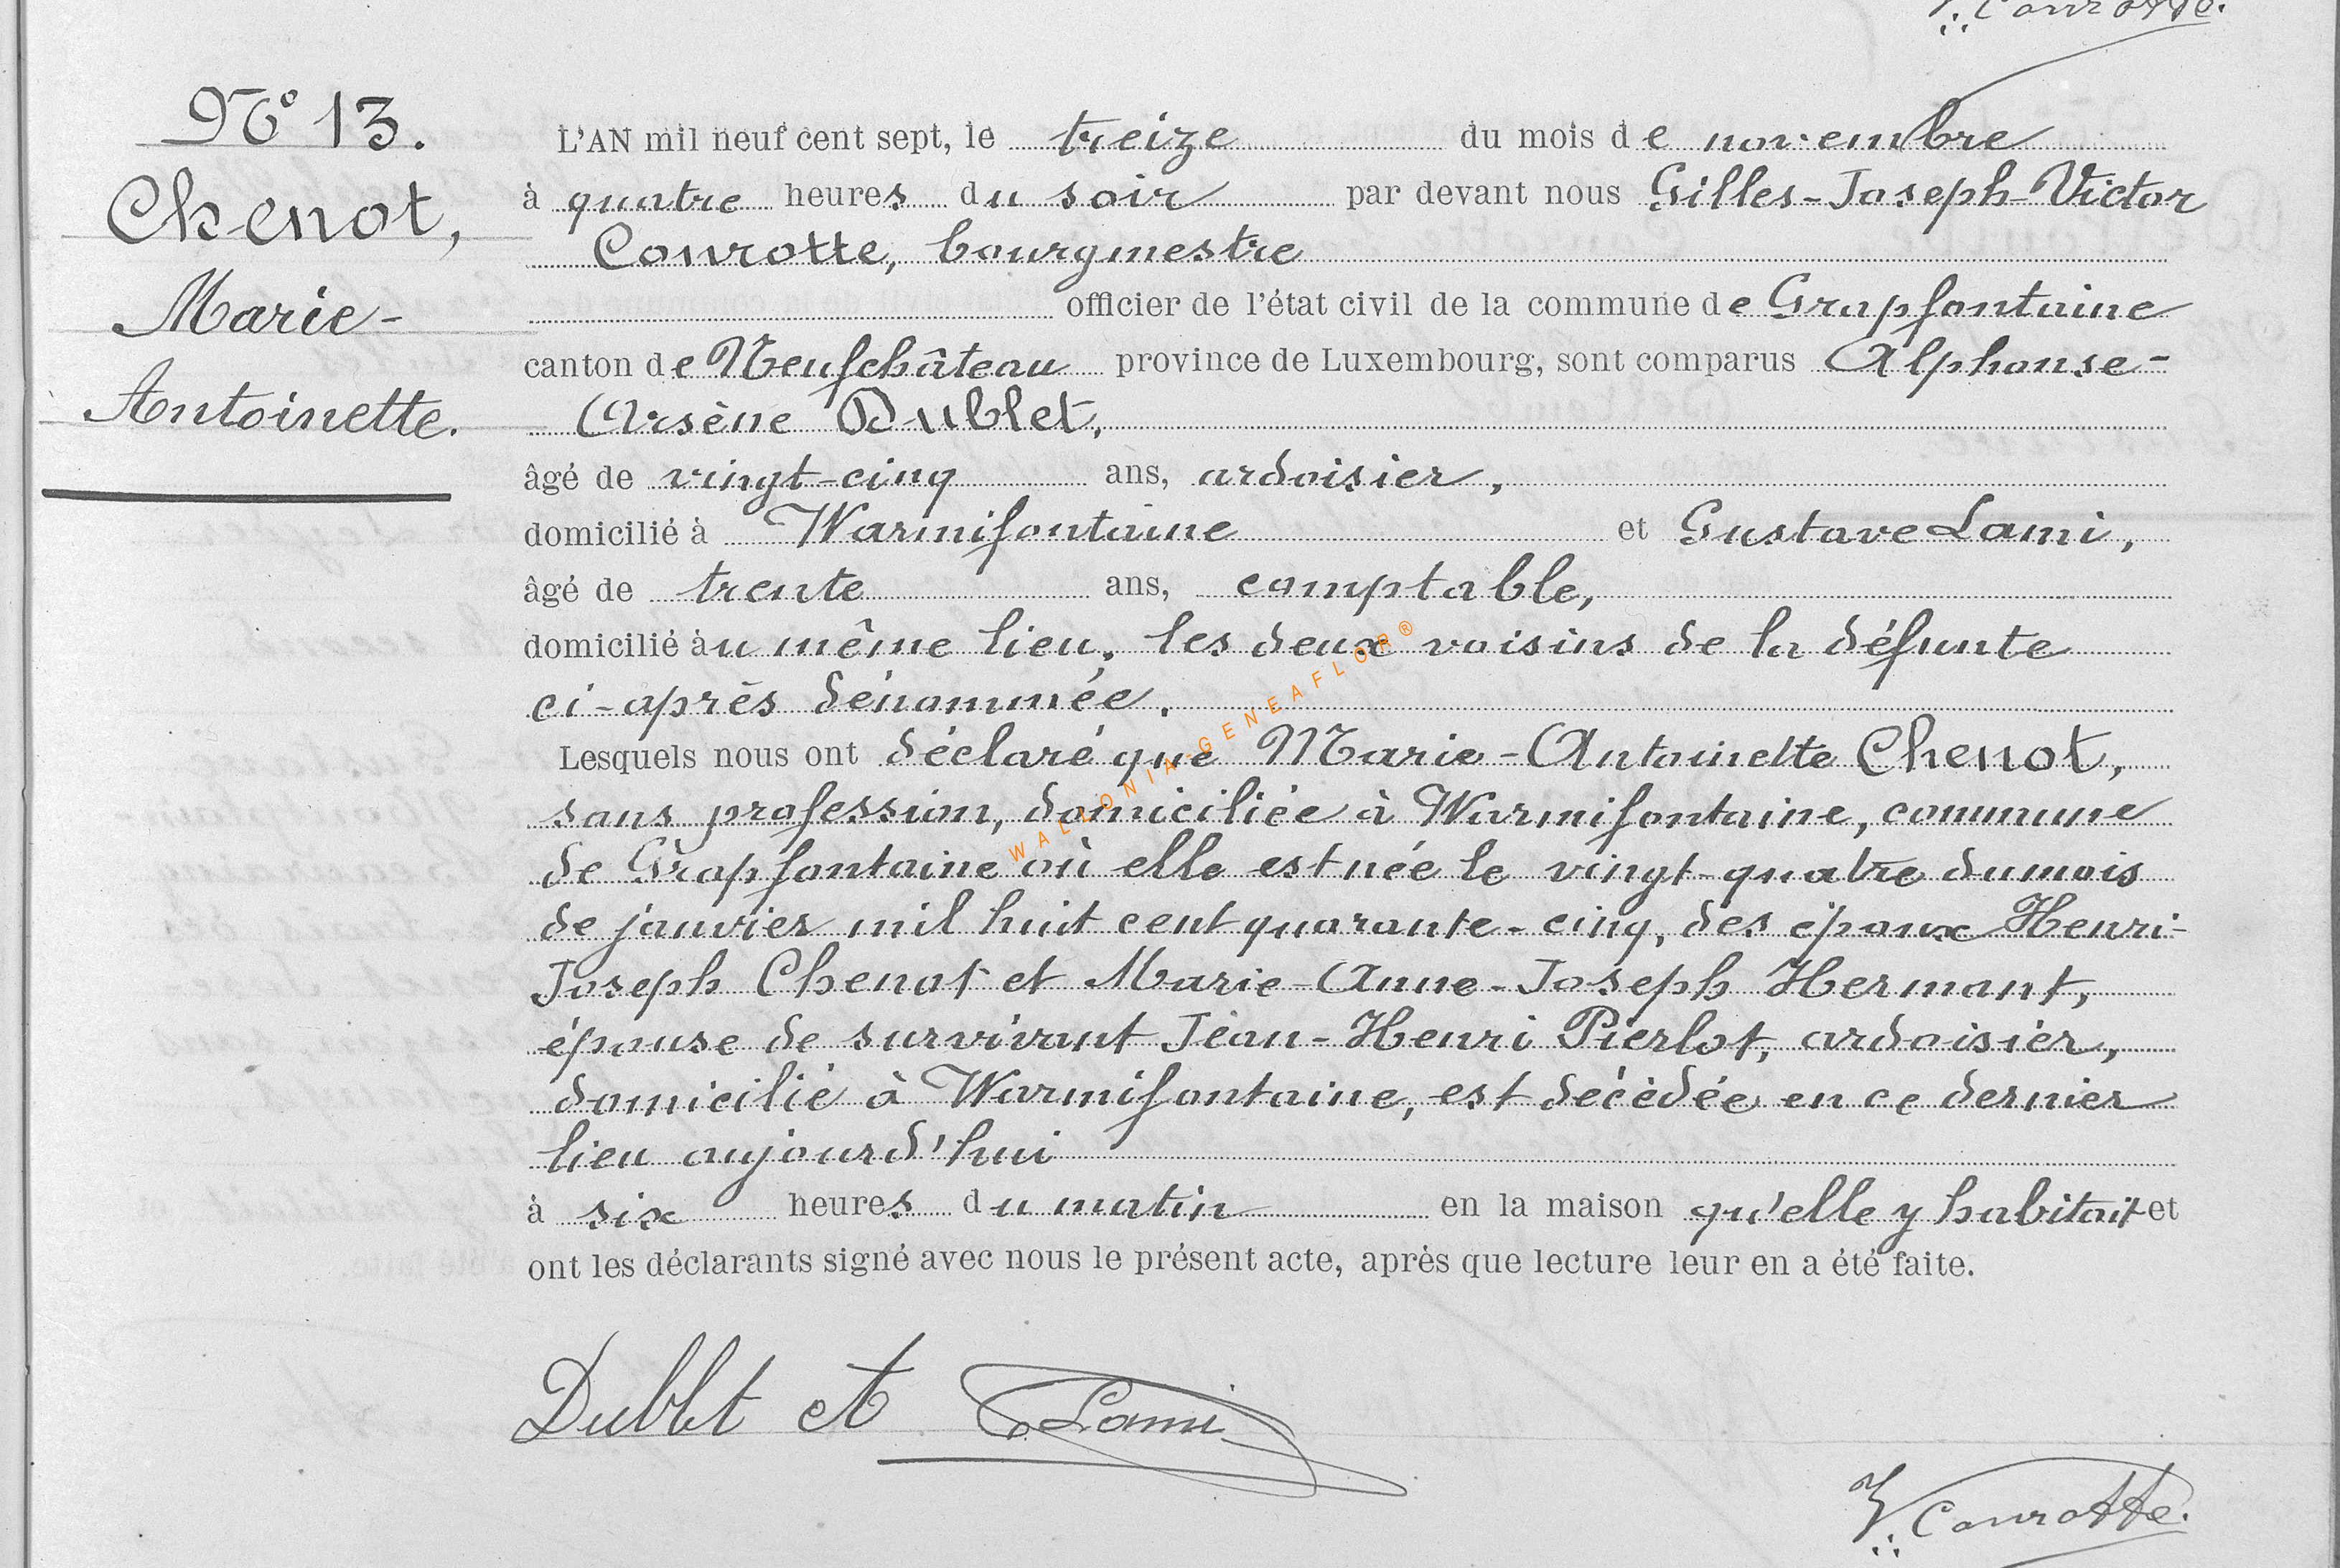 V. Conrotte.
N° 13.
Chenot,
Marie-
Antoinette.
L'AN mil neuf cent sept, le treize du mois de novembre
à quatre heures du soir par devant nous Gilles-Joseph-Victor
Conrotte, bourgmestre
officier de l'état civil de la commune de Grapfontaine
canton de Neufchâteau province de Luxembourg, sont comparus Alphonse-
Arsène Dublet,
âgé de vingt-cinq ans, ardoisier,
domicilié à Warmifontaine et Gustave Lami,
âgé de trente ans, comptable,
domicilié àu même lieu, les deux voisins de la défunte
ci-après dénommée.
Lesquels nous ont déclaré que Marie-Antoinette Chenot,
sans profession, domiciliée à Warmifontaine, commune
de Grapfontaine où elle est née le vingt-quatre du mois
de janvier mil huit cent quarante-cinq, des époux Henri-
Joseph Chenot et Marie-Anne-Joseph Hermant,
épouse de survivant Jean-Henri Pierlot, ardoisier,
domicilié à Warmifontaine, est décédée en ce dernier
lieu aujourd'hui
à six heures du matin en la maison qu'elle y habitait et
ont les déclarants signé avec nous le présent acte, après que lecture leur en a été faite.
Dublet A Lami
V. Conrotte.
WALLONIA-GENEAFLOR®